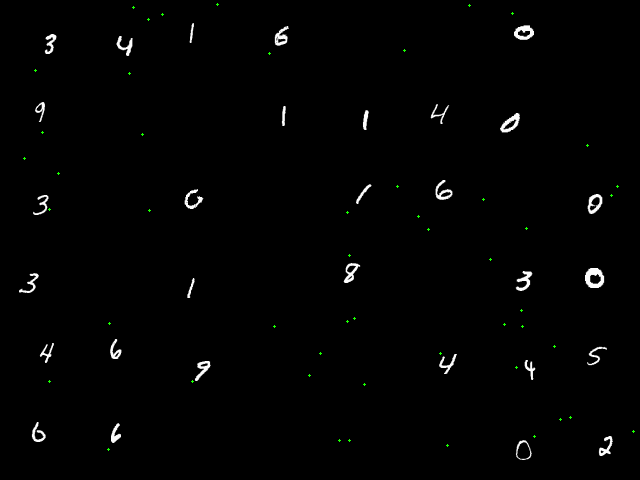 3 4 1 6 0
9 1 1 4 0
3 0 1 6 0
3 1 8 3 0
4 6 9 4 4 5
6 6 0 2